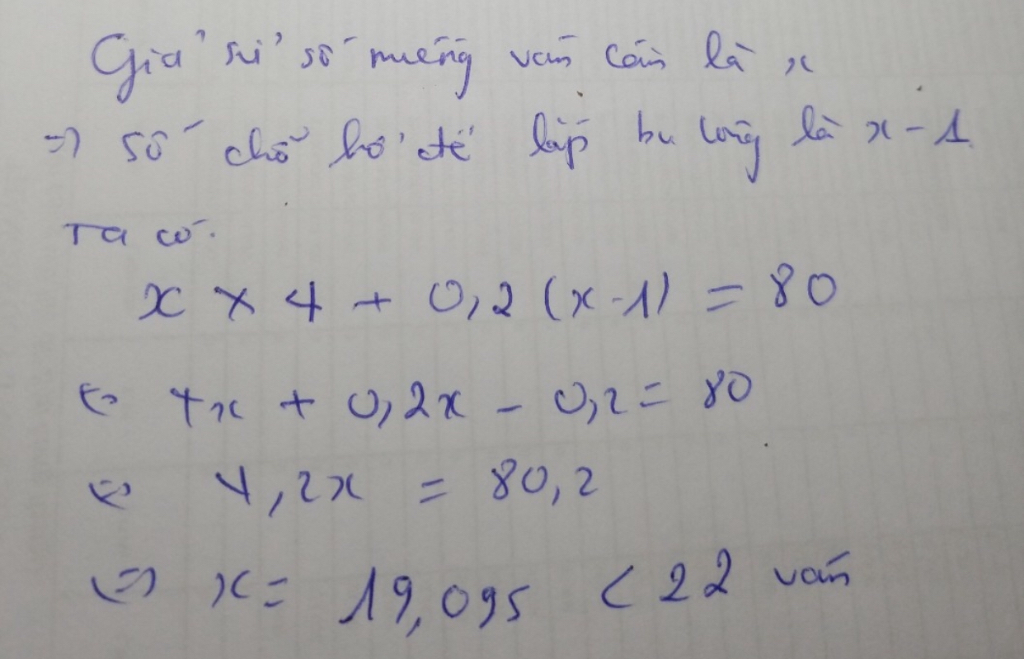 Giả sử số miếng ván cần là x
=> số chỗ hở để lắp bu lông là x - 1
Ta có.
x × 4 + 0,2 (x - 1) = 80
⇔ 4x + 0,2x - 0,2 = 80
⇔ 4,2x = 80,2
⇔ x = 19,095 < 22 ván